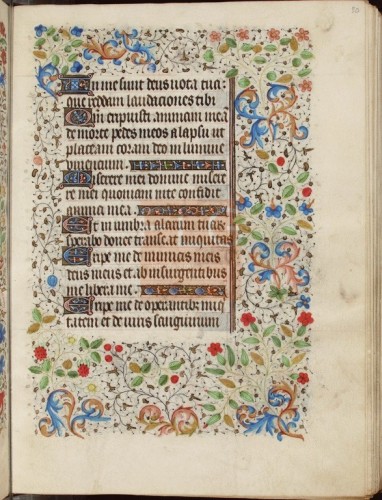 In me sunt deus vota tua:
que reddam laudaciones tibi
Qui eripuisti animam mea
de morte pedes meos a lapsu ut
placeam coram deo in lumine
viventium.
Miserere mei domine misere
re mei quoniam in te confidit
anima mea.
Et in umbra alarum tuar
sperabo donec transeat iniquitas
Eripe me de inimicis meis
deus meus et ab insurgentibus
me libera me.
Eripe me de operantibz iniq
tatem et de viris sanguinum